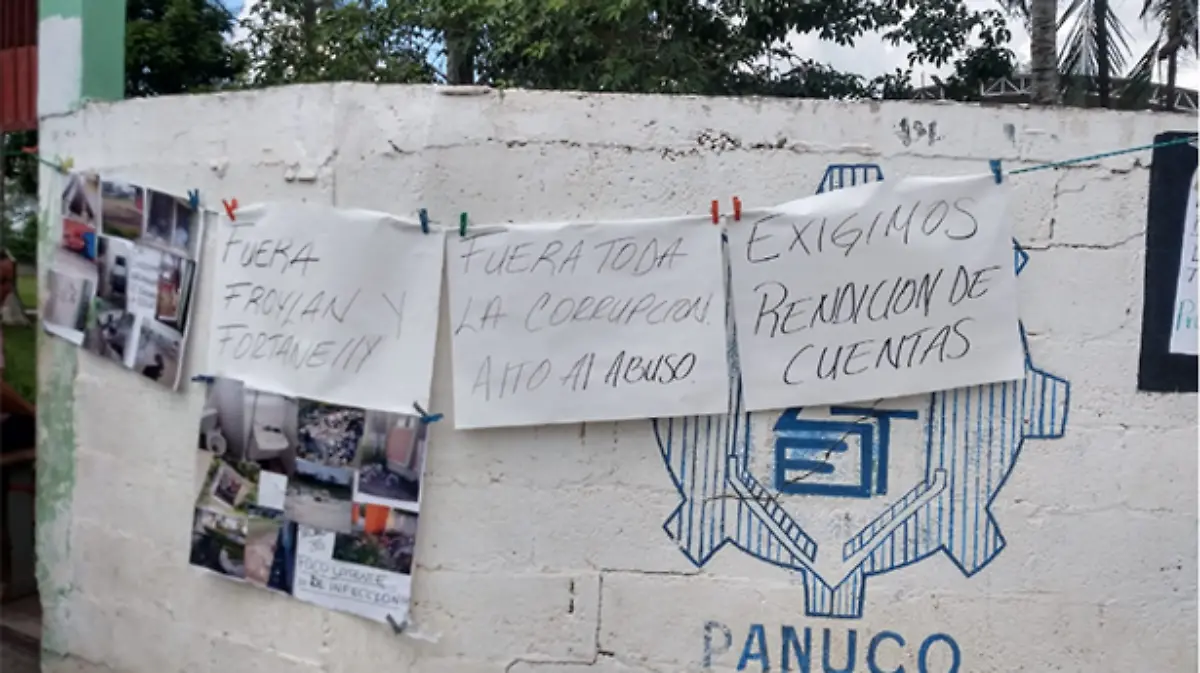 FUERA
FROYLAN Y
FORTANELLY
FUERA TODA
LA CORRUPCION.
ALTO AL ABUSO.
EXIGIMOS
RENDICION DE
CUENTAS
FOCO
DE INFECCION
PANUCO